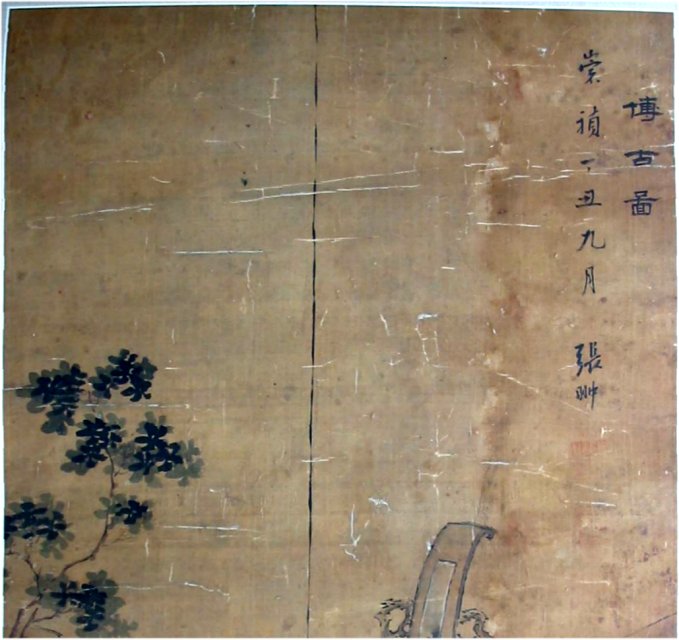 博古啚
崇禎丁丑九月 張翀